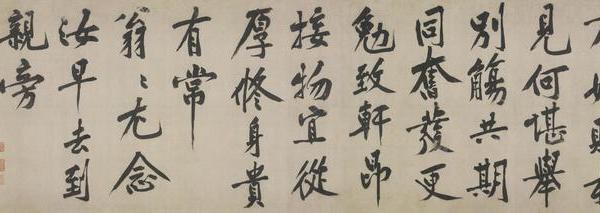 見何堪舉
別觴共期
同奮發更
勉致軒昂
接物宜從
厚修身貴
有常
翁〻尤念
汝早去到
親旁